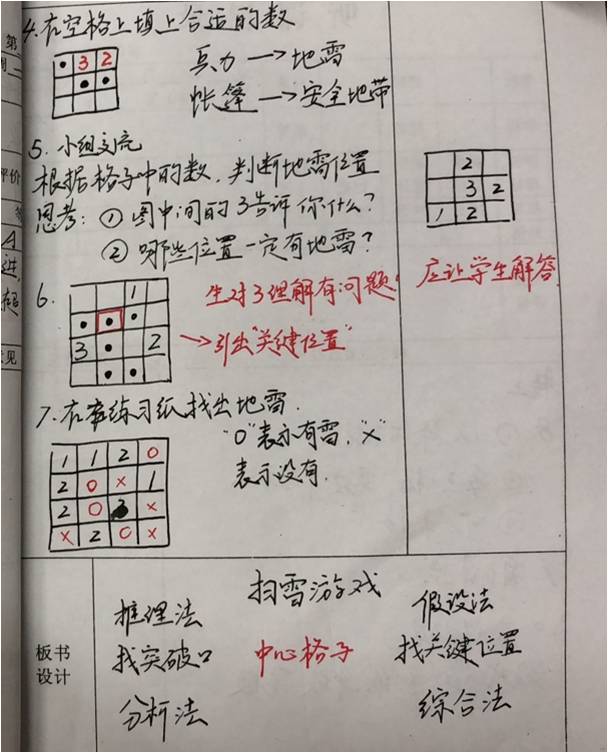 4. 在空格上填上合适的数
3 2
兵力→地雷
帐篷→安全地带
5. 小组交流
根据格子中的数,判断地雷位置
思考:① 图中间的3告诉你什么?
② 哪些位置一定有地雷?
2
3 2
1 2
应让学生解答
6.
1
3 2
生对3理解有问题
→引出"关键位置"
7. 在练习纸找出地雷.
"O"表示有雷."×"
表示没有.
1 1 2 O
2 O × 1
2 O 2 ×
× 2 O ×
板书
设计
扫雷游戏
推理法 假设法
找突破口 中心格子 找关键位置
分析法 综合法
第
周
评价
等
A
进,
超
意见